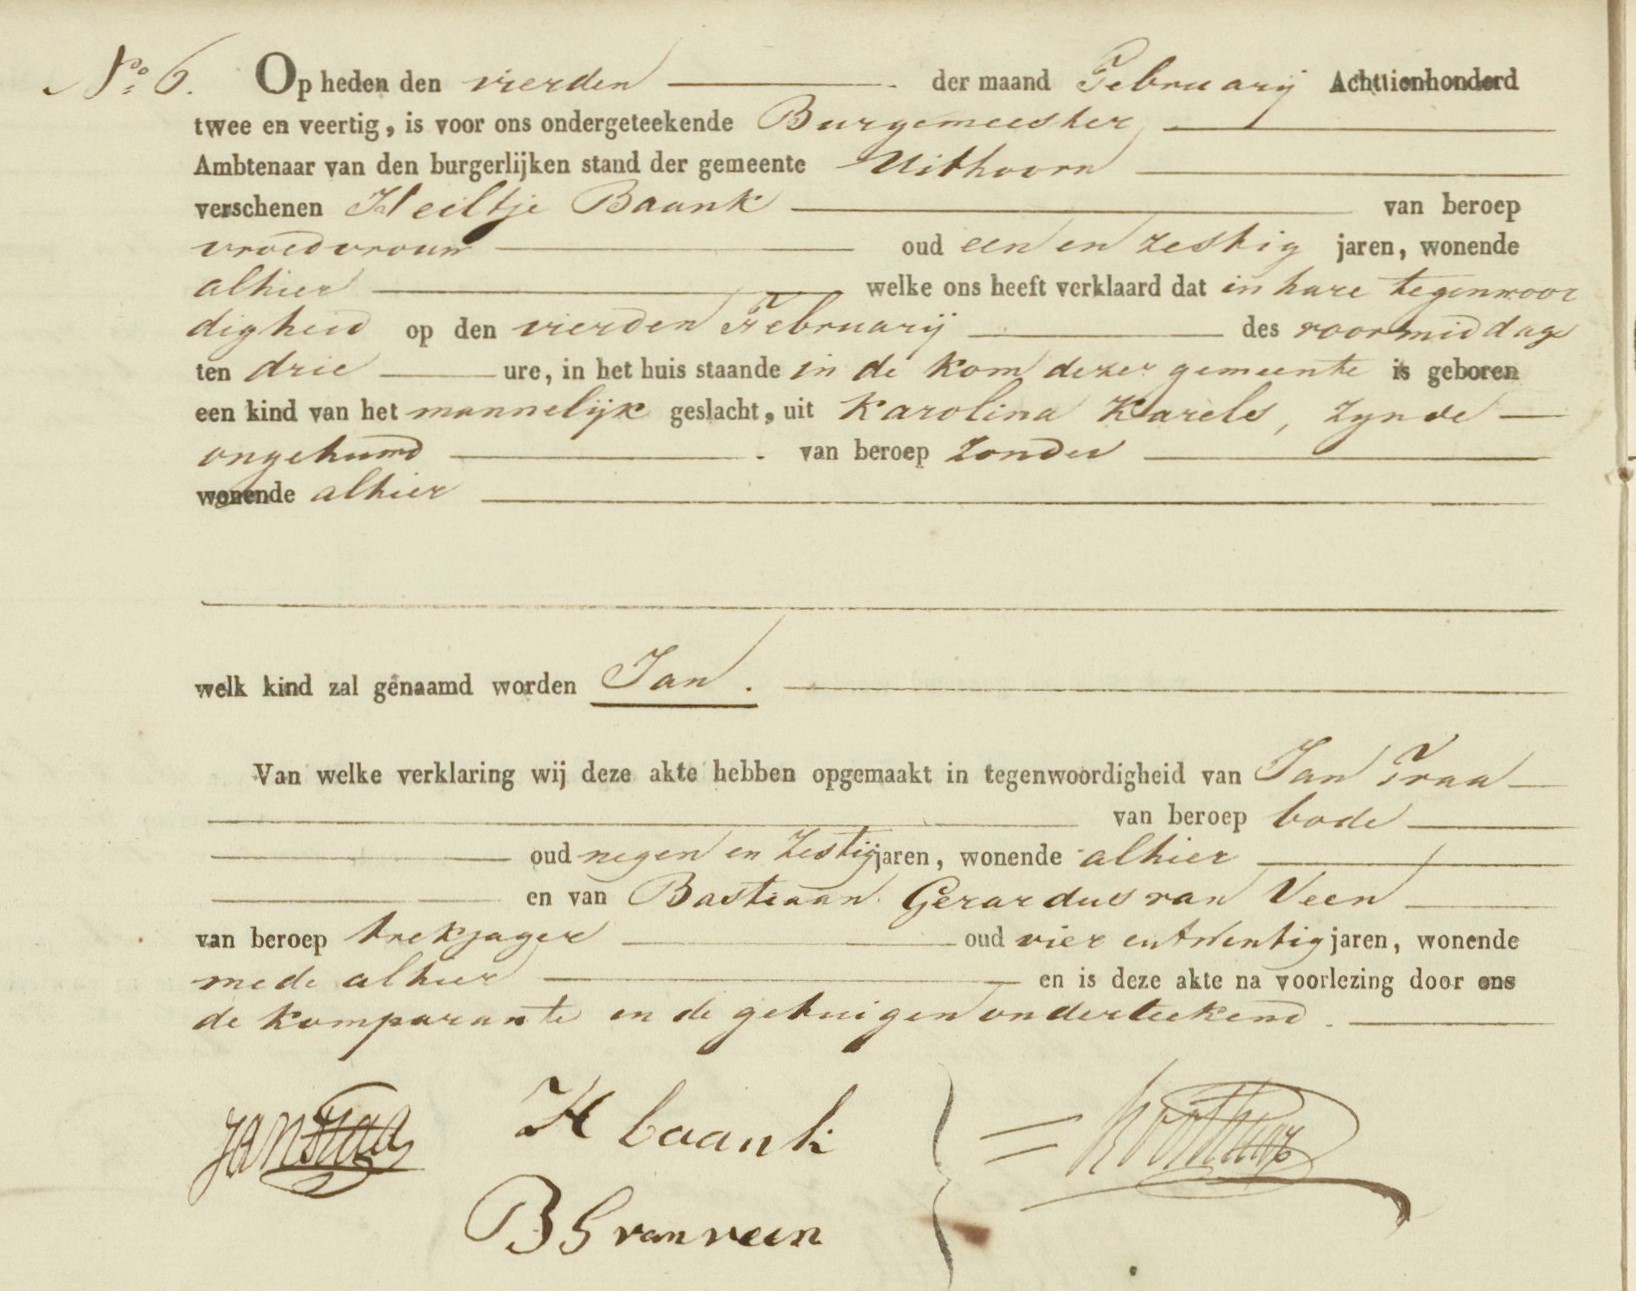 No. 6. Op heden den vierden der maand Februarij Achttienhonderd
twee en veertig, is voor ons ondergeteekende Burgemeester
Ambtenaar van den burgerlijken stand der gemeente Uithoorn
verschenen Heiltje Baank van beroep
vroedvrouw oud een en zestig jaren, wonende
alhier welke ons heeft verklaard dat in hare tegenwoor
digheid op den vierden Februarij des voormiddags
ten drie ure, in het huis staande in de kom dezer gemeente is geboren
een kind van het mannelijk geslacht, uit Karolina Karels, zynde
ongehuwd van beroep zonder
wonende alhier
welk kind zal genaamd worden Jan.
Van welke verklaring wij deze akte hebben opgemaakt in tegenwoordigheid van Jan Traa
van beroep bode
oud negen en zestig jaren, wonende alhier
en van Bastiaan Gerardus van Veen
van beroep trekjager oud vier en twentig jaren, wonende
mede alhier en is deze akte na voorlezing door ons
de komparante en de getuigen onderteekend.
Jan Traa H baank
B G van veen